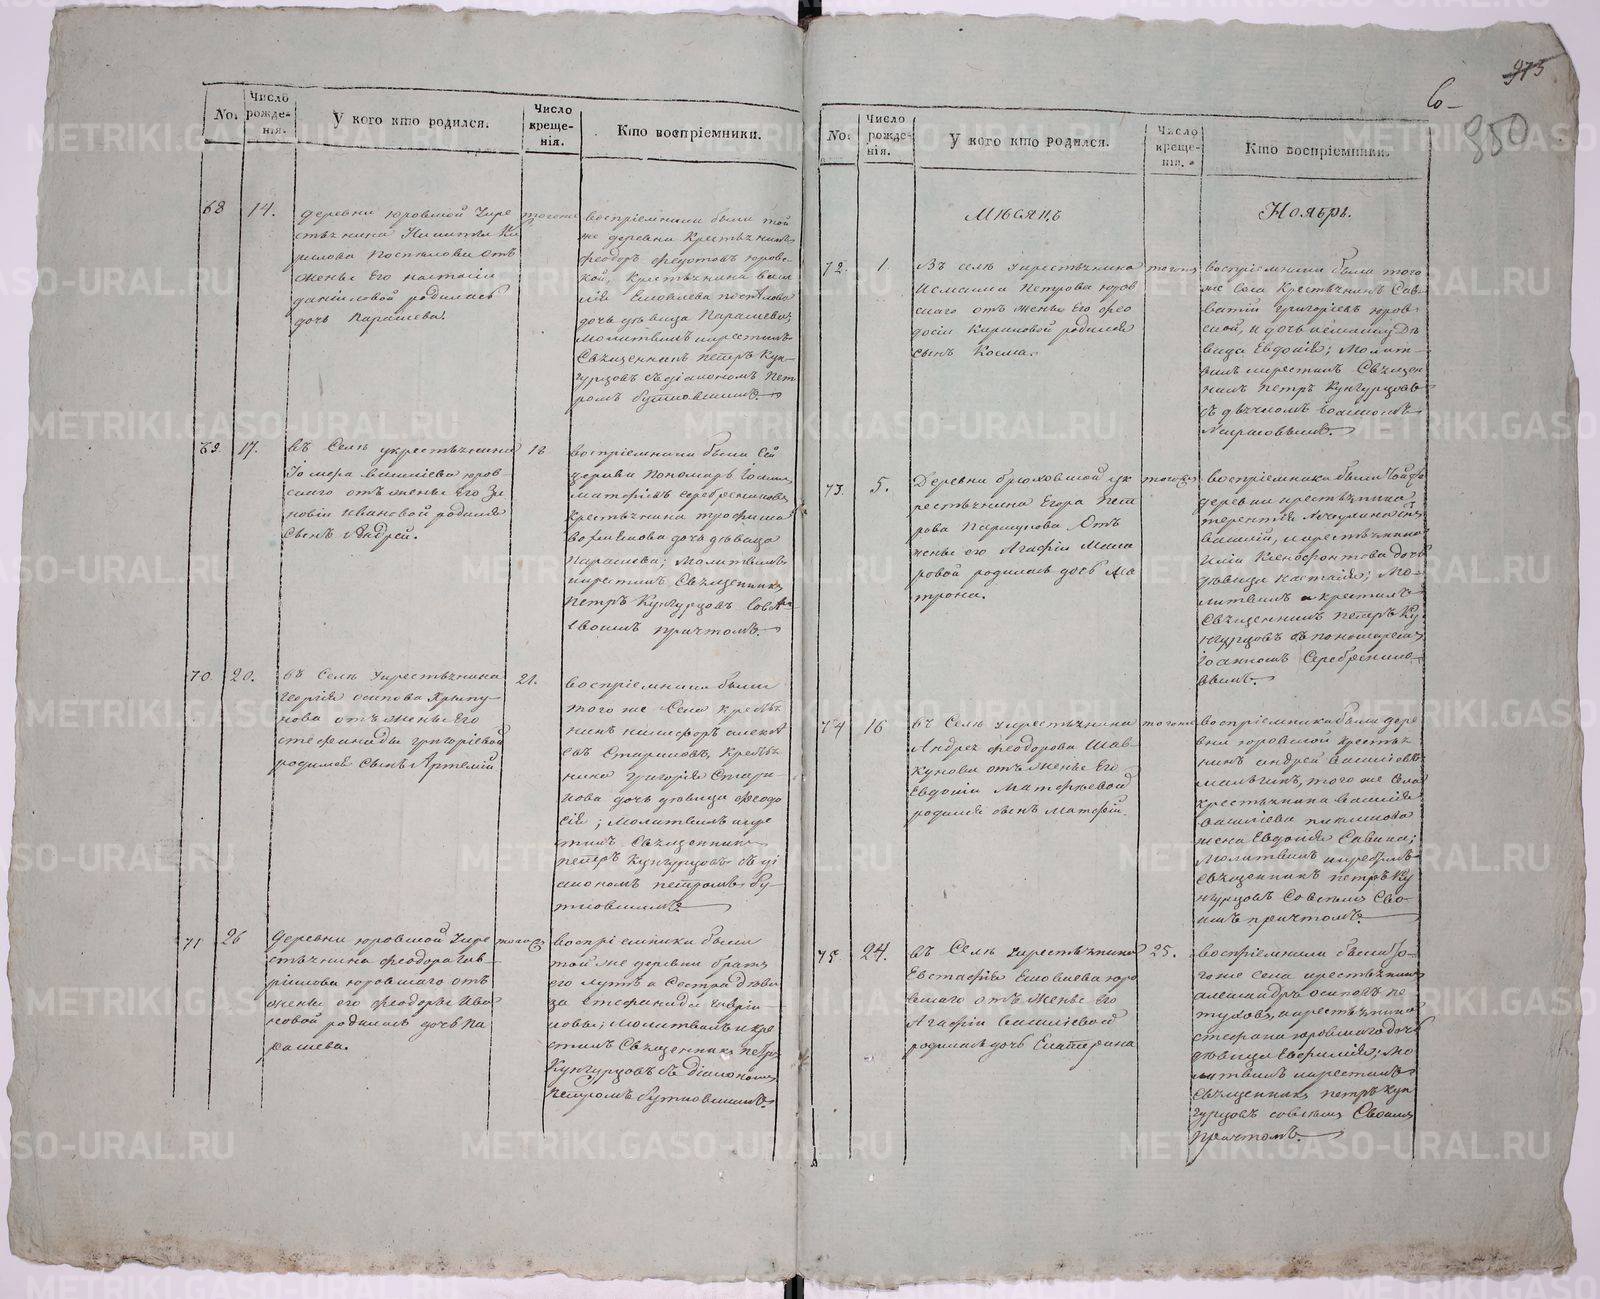 975
Со-
350
No.
Число рожде- нія.
У кого кто родился.
Число креще- нія.
Кто воспріемники.
68
14.
деревни юровской укре
стьянина Никиты Ки
рилова Поспелова отъ
жены Его настасіи
даніиловой родилась
дочь Параскева.
тогоже
воспріемники были той
же деревни Крестьянинъ
феодоръ федотовъ юров-
кой, Крестьянина васи
лія
дочь девица Параскева;
молитвилъ икрестилъ
Священникъ петръ Кун-
гурцовъ съ діакономъ пет
ромъ бутковскимъ.
69.
17.
въ Селе укрестьянина
василіева юров-
скаго отъ жены его Зи
новіи ивановой родился
сынъ Андрей.
18
воспріемники были сей
церкви Пономарь Іоаннъ
матфіевъ серебренниковъ
крестьянина трофима
дочь девица
Параскева; Молитвилъ
икрестилъ Священникъ
петръ Кунгурцовъ
своимъ причтомъ.
70
20.
въ Селе укрестьянина
Георгія осипова
отъ жены Его
стефаниды григоріевой
родился сынъ Артемій
21.
воспріемники были
того же Села крестья
нинъ никифоръ алекса
евъ Стариковъ, Крестья
нина григорія Стари
кова дочь девица феодо
сія; Молитвилъ икре
стилъ Священникъ
петръ Кунгурцовъ съ ді
акономъ петромъ бу-
тковскимъ.
71
26
деревни юровской укре
стьянина феодора гав-
рилова юровскаго отъ
жены его феодоры ива
новой родилась дочь Па
раскева.
тогоже
воспріемники были
той же деревни братъ
его и Сестра деви
ца стефанида гаврии
ловы; молитвилъ икре
стилъ Священникъ петръ
Кунгурцовъ съ діакономъ
петромъ бутковскимъ.
No.
Число рожде- нія.
У кого кто родился.
Число креще- нія.
Кто воспріемники.
Месяцъ
Ноябрь.
72.
1.
Въ селе укрестьянина
Петрова юров
скаго отъ жены Его фео
досіи Кириловой родился
сынъ Косма.
тогоже
воспріемники были того
же Села Крестьянинъ Сав
ватій григоріевъ юров-
ской, и дочь Де
вица Евдокія; Молит-
вилъ икрестилъ Священ
никъ петръ Кунгурцовъ
съ дьячкомъ
Некрасовымъ.
73.
5.
Деревни брюховской укр
рестьянина Егора Пет
рова Паршукова отъ
жены его Агафіи Мака
ровой родилась дочь Ма
трона.
тогоже
воспріемники были той же
деревни крестьянина
терентія сынъ
василій, икрестьянина
Ильи Ксенофонтова дочь
девица настасія; Мо-
литвилъ и крестилъ
Священникъ петръ Ку
нгурцовъ съ пономаремъ
Іоанномъ Серебренико-
вымъ.
74
16
въ Селе укрестьянина
Андрея феодорова Шав-
кунова отъ жены Его
Евдокіи Матфеевой
родился сынъ матфій.
тогоже
воспріемники были дере
вни юровской крестья
нинъ андрей василіевъ
мальгинъ, того же Села
крестьянина василія
василіева пикалкова
жена Евдокія Савина;
Молитвилъ икрестилъ
священникъ петръ Ку
нгурцовъ совсемъ Сво
имъ причтомъ.
75.
24.
въ Селе укрестьянина
Евстафія юро
вскаго отъ жены Его
Агафіи василіевой
родилась дочь Екатерина
25.
воспріемники были то-
гоже села крестьянинъ
александръ осиповъ пе
туховъ, икрестьянина
стефана юровскаго дочь
девица Евфимія; мо
литвилъ икрестилъ
Священникъ петръ Кун
гурцовъ совсемъ Своимъ
причтомъ.